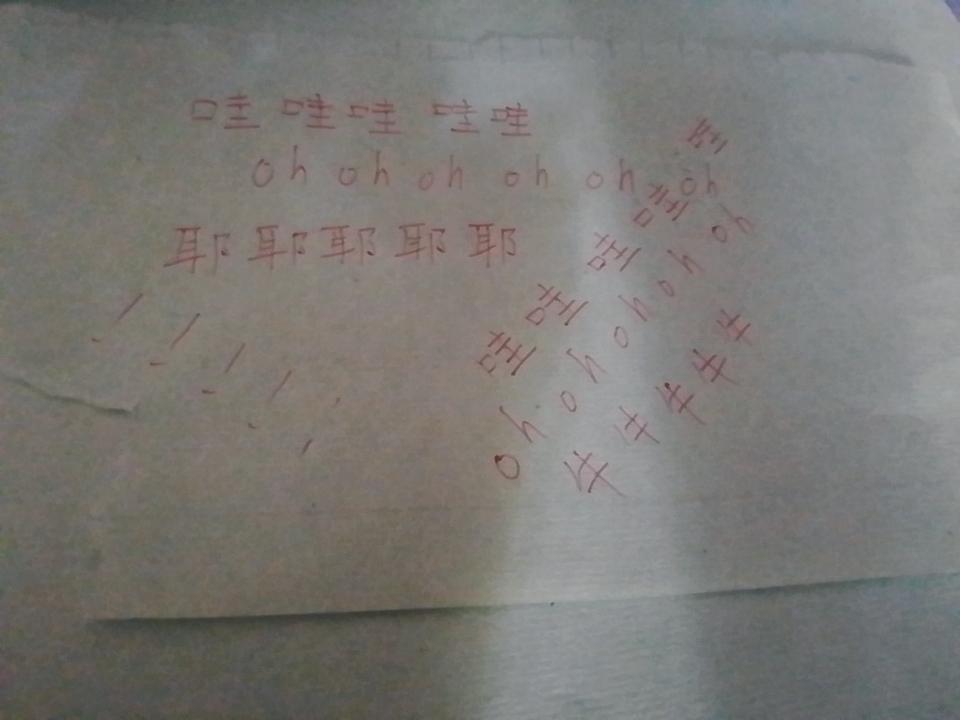 哇哇哇哇哇
oh oh oh oh oh oh
耶耶耶耶耶
!!!!!
哇哇哇哇哇
oh oh oh oh oh
牛牛牛牛牛